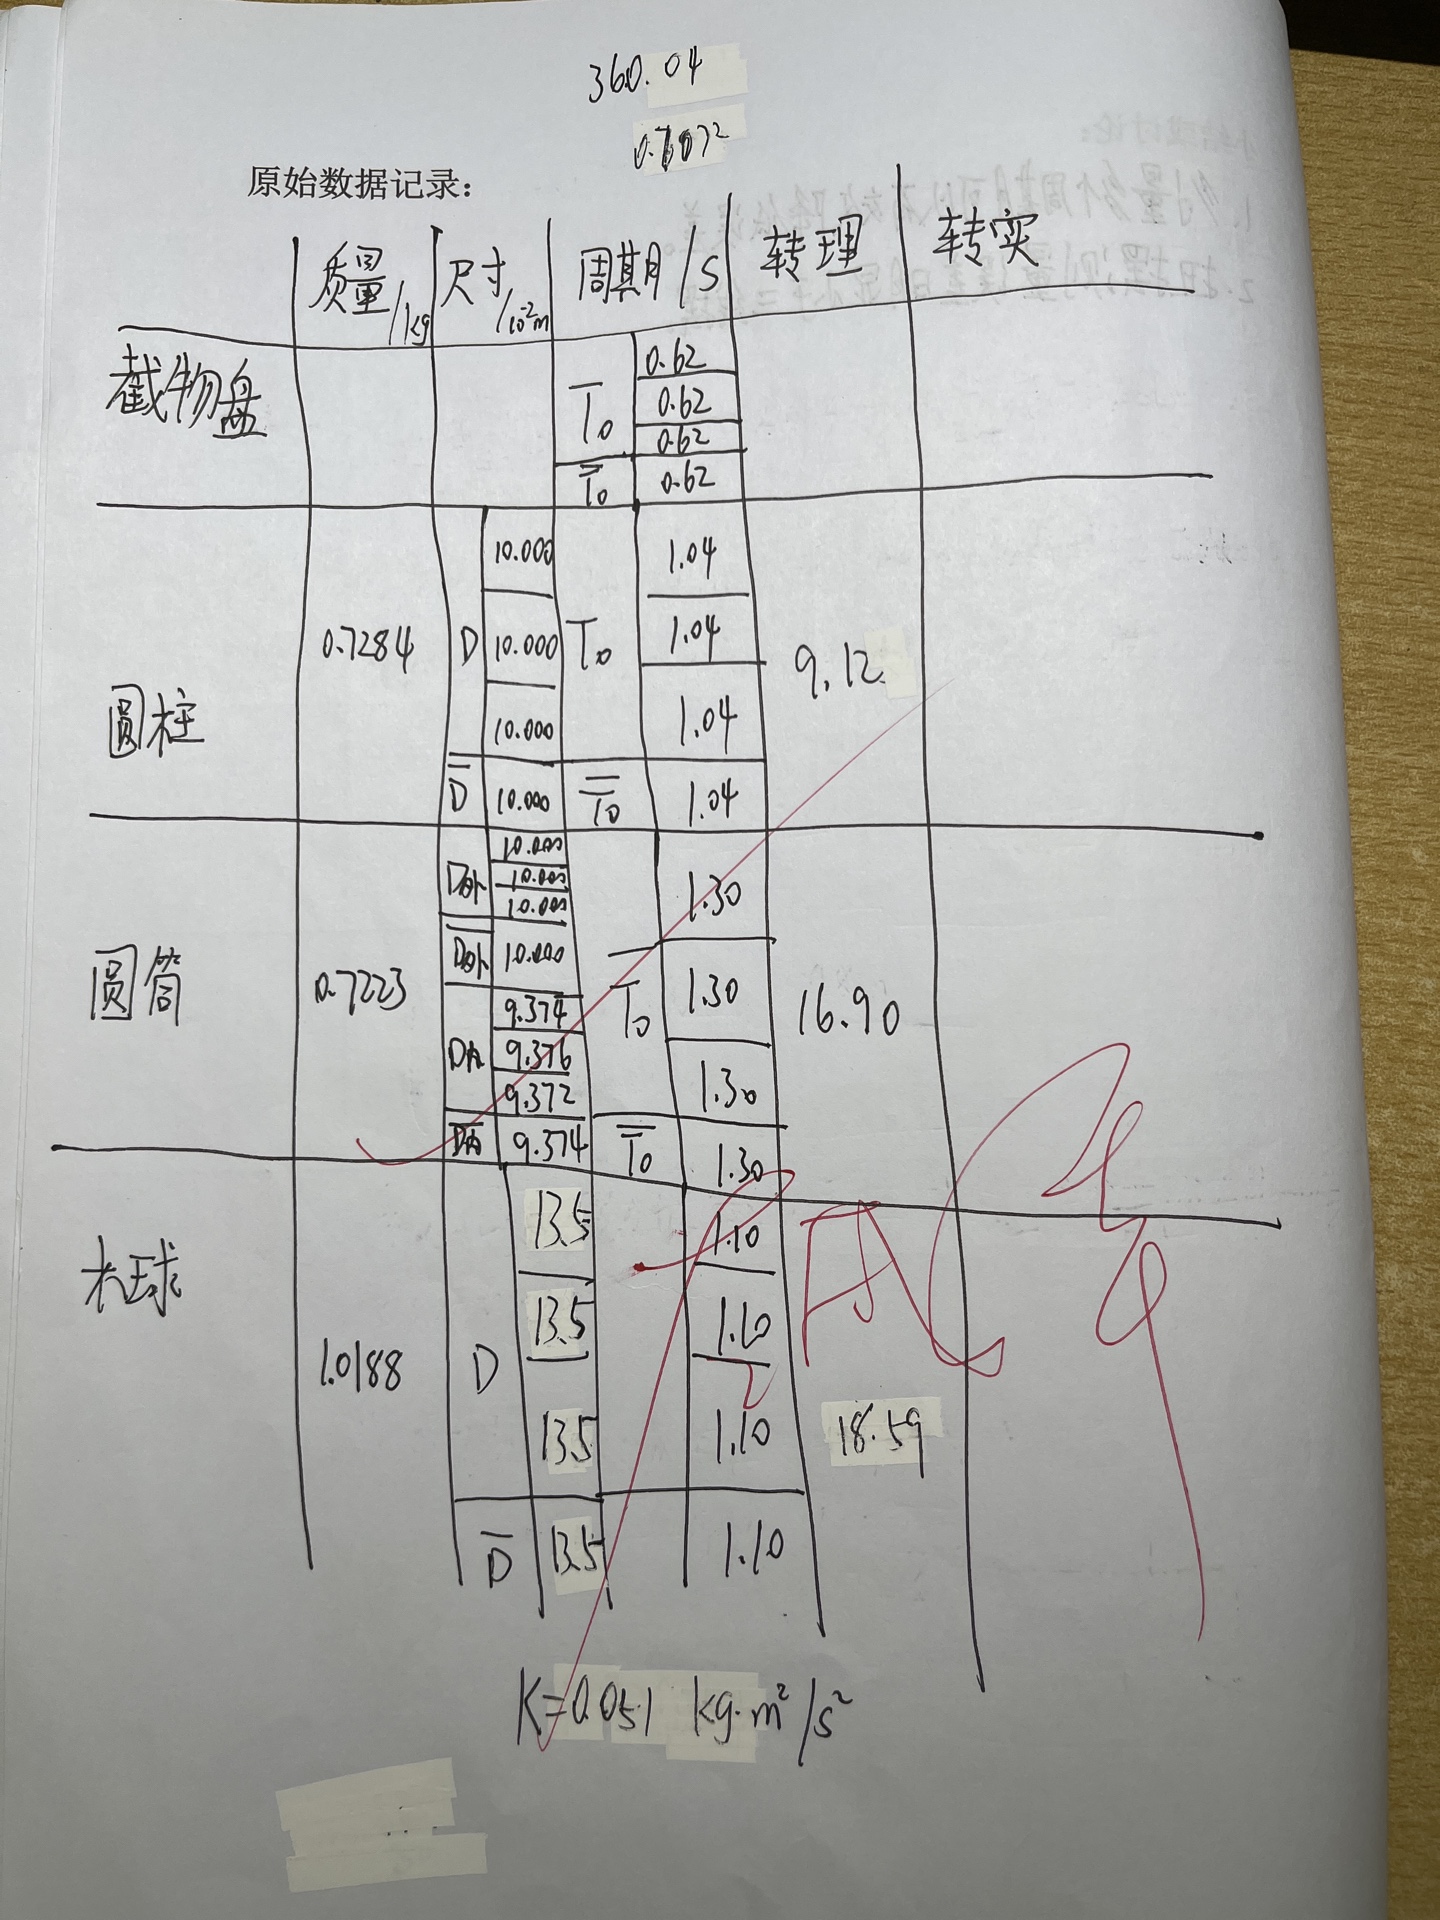 360.04
原始数据记录：
质量/kg 尺寸/10⁻²m 周期/S 转理 转实
截物盘 T̄₀ 0.62
0.62
0.62
T̄₀ 0.62
圆柱 0.7284 D 10.000 T₀ 1.04 9.12
10.000 1.04
10.000 1.04
D̄ 10.000 T̄₀ 1.04
圆筒 0.7223 D外 10.000 T̄₀ 1.30 16.90
10.000 1.30
10.000 1.30
D̄外 10.000
D内 9.374
9.376
9.372
D̄内 9.374 T̄₀ 1.30
木球 1.0188 D 13.5 1.10 18.59
13.5 1.10
13.5 1.10
D̄ 13.5 1.10
K=0.051 kg·m²/s²